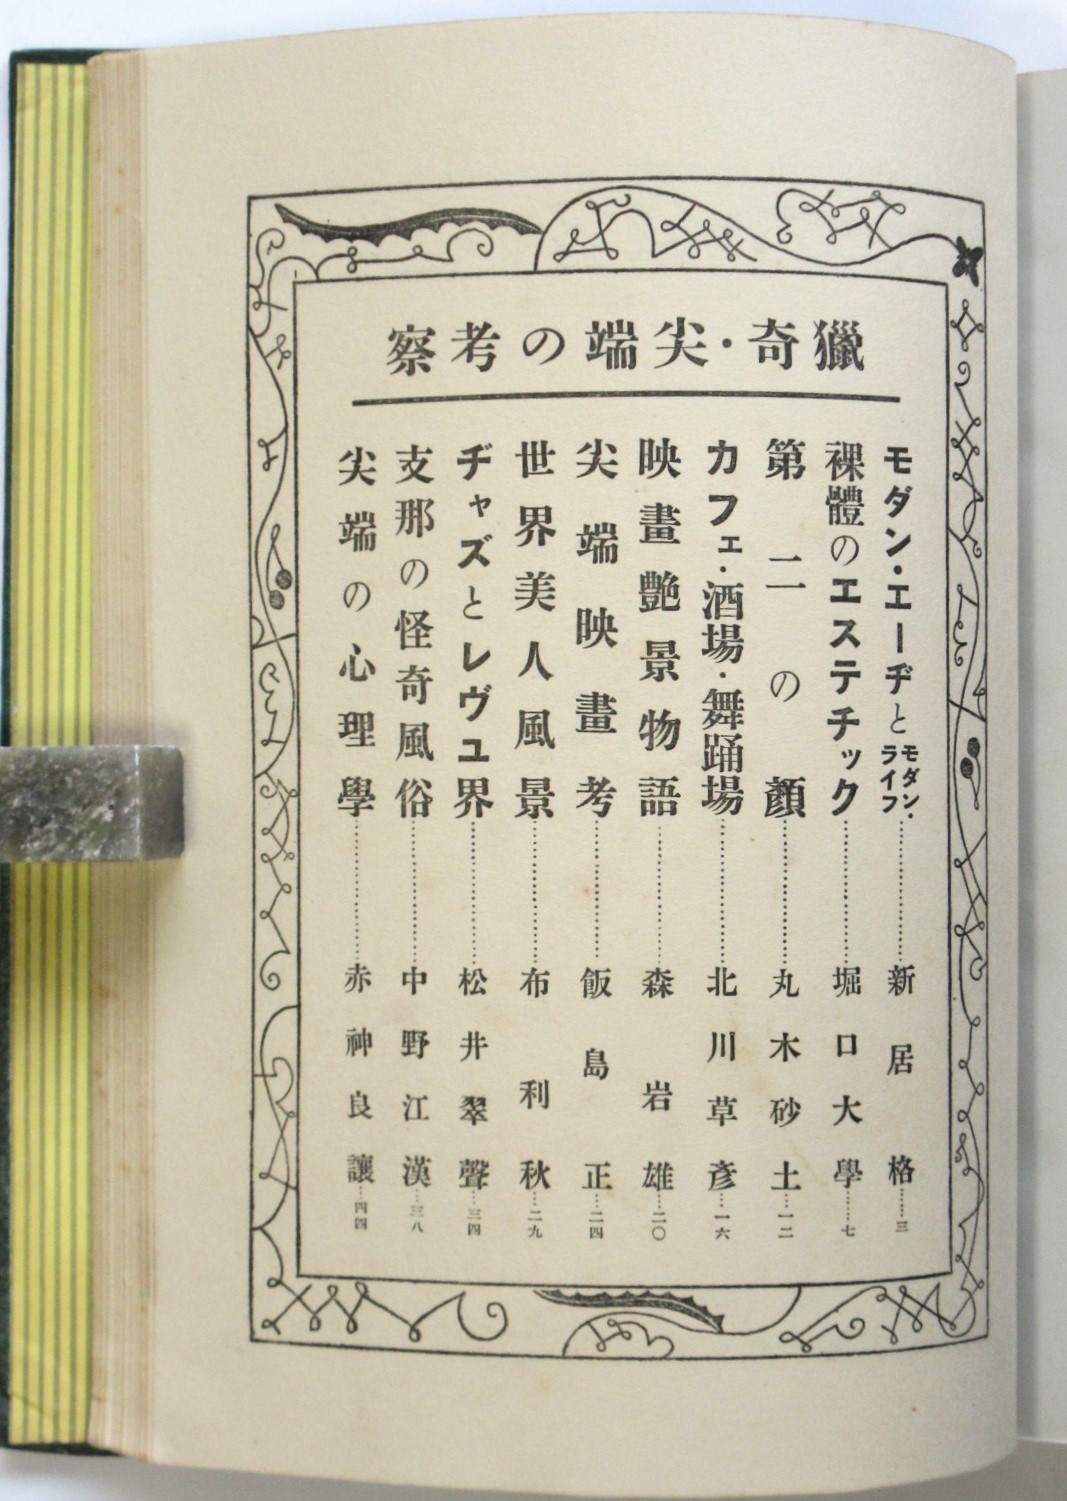 獵奇・尖端の考察
モダン・エーヂとモダン・ライフ………新居格……三
裸體のエステチック………堀口大學……七
第二の顏………丸木砂土…一二
カフェ・酒場・舞踊場………北川草彥…一六
映畫艶景物語………森岩雄…二〇
尖端映畫考………飯島正…二四
世界美人風景………布利秋…二九
ヂャズとレヴュ界………松井翠聲…三四
支那の怪奇風俗………中野江漢…三八
尖端の心理學………赤神良讓…四四